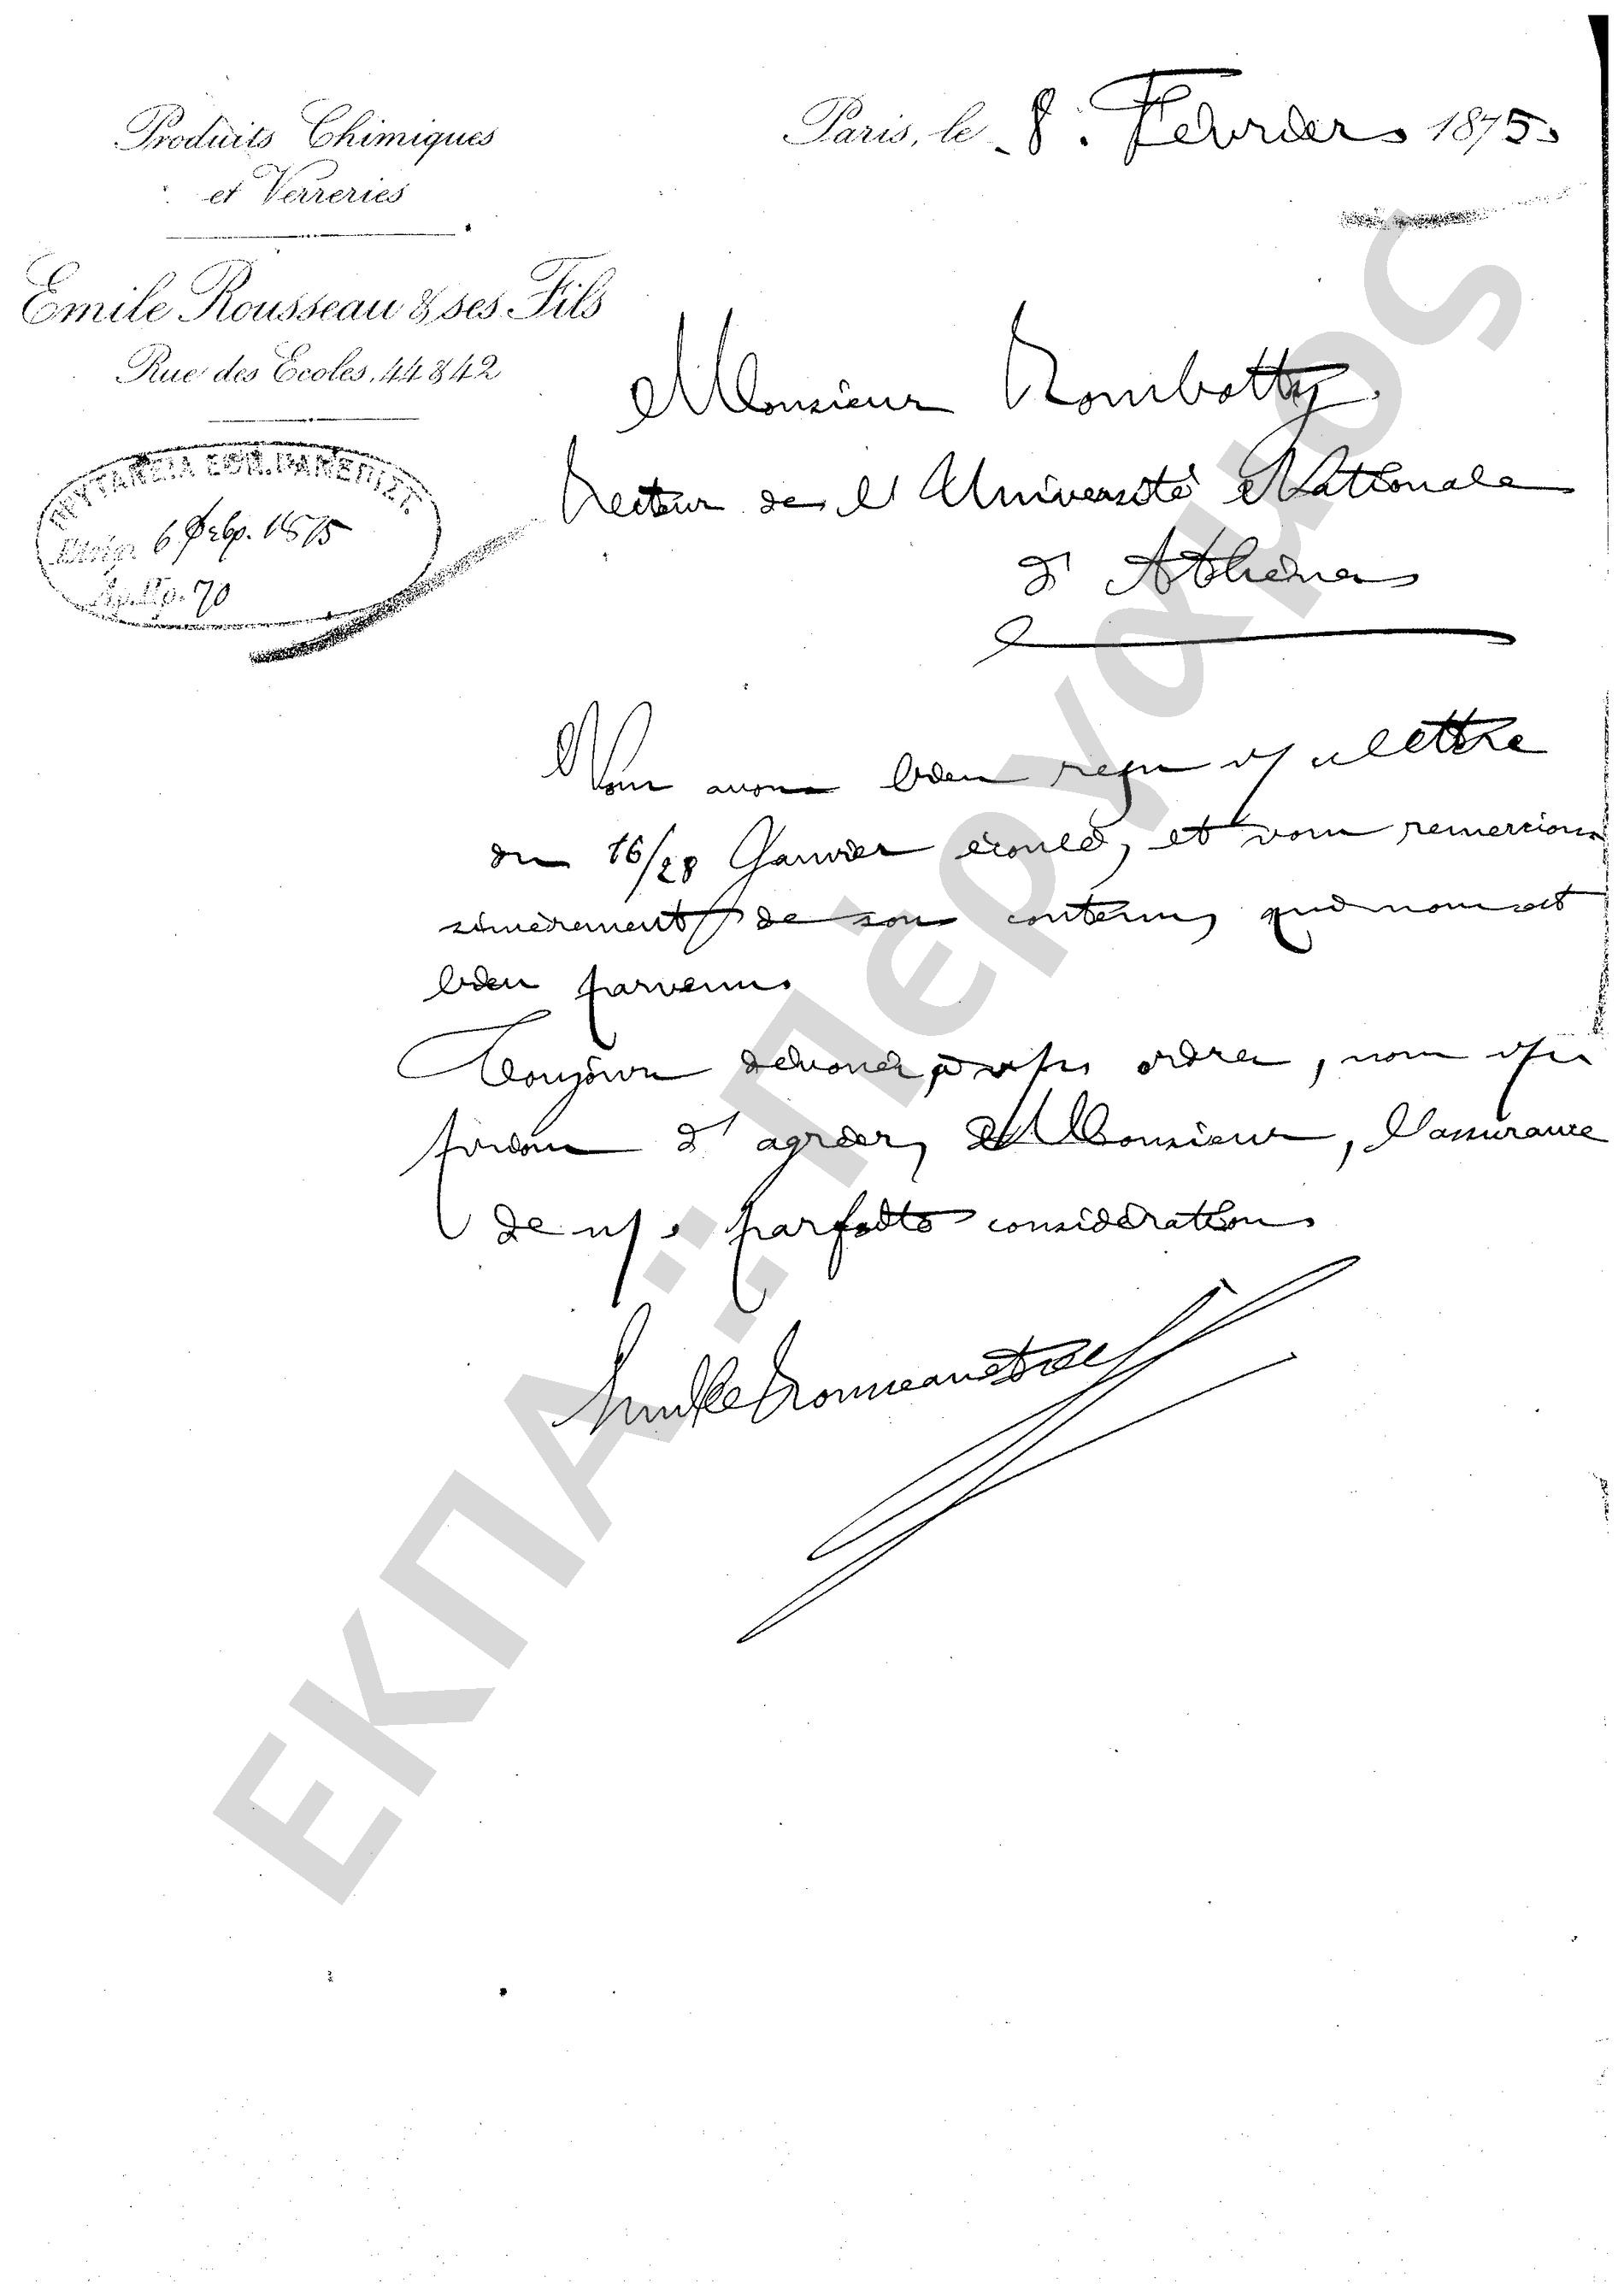 Produits Chimiques
et Verreries
Emile Rousseau & ses Fils
Rue des Ecoles, 44 & 42
Paris, le 8. Fevrier 1875
ΠΡΥΤΑΝΕΙΑ ΕΘΝ. ΠΑΝΕΠΙΣΤ.
6 Φεβρ. 1875
Αρ. Πρ. 70
Monsieur Rombotty
Recteur de l'Université Nationale
d'Athènes
Nous avons bien reçu v/ lettre
du 16/28 Janvier écoulé, et vous remercions
sincèrement de son contenu, qui nous est
bien parvenu.
Toujours dévoués à vos ordres, nous vous
prions d'agréer, Monsieur, l'assurance
de n/ parfaite considération
Emile Rousseau et Fils
ΕΚΠΑ: Πέργαμος